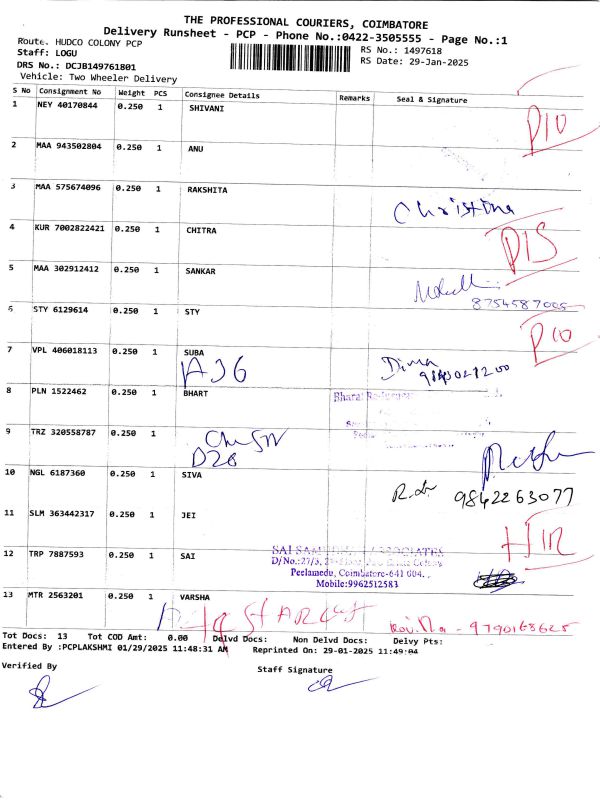 THE PROFESSIONAL COURIERS, COIMBATORE
Delivery Runsheet - PCP - Phone No.:0422-3505555 - Page No.:1
Route. HUDCO COLONY PCP
Staff: LOGU
RS No.: 1497618
DRS No.: DCJB149761801
RS Date: 29-Jan-2025
Vehicle: Two Wheeler Delivery
S No Consignment No Weight PCS Consignee Details Remarks Seal & Signature
1 NEY 40170844 0.250 1 SHIVANI
2 MAA 943502804 0.250 1 ANU
3 MAA 575674096 0.250 1 RAKSHITA
Christina
4 KUR 7002822421 0.250 1 CHITRA
5 MAA 302912412 0.250 1 SANKAR
8754587005
6 STY 6129614 0.250 1 STY
7 VPL 406018113 0.250 1 SUBA
8 PLN 1522462 0.250 1 BHART
9 TRZ 320558787 0.250 1
D26
10 NGL 6187360 0.250 1 SIVA
9842263077
11 SLM 363442317 0.250 1 JEI
12 TRP 7887593 0.250 1 SAI
Peelamedu, Coimbatore-641 004.
Mobile:9962512583
13 MTR 2563201 0.250 1 VARSHA
9790168625
Tot Docs: 13 Tot COD Amt: 0.00 Delvd Docs: Non Delvd Docs: Delvy Pts:
Entered By :PCPLAKSHMI 01/29/2025 11:48:31 AM Reprinted On: 29-01-2025 11:49:04
Verified By
Staff Signature